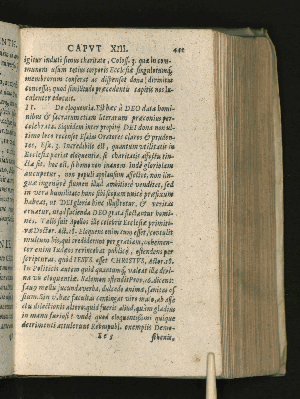 CAPVT XIII.
igitur induti simus charitate, Coloss. 3. quæ in com-
munem usum totius corporis Ecclesiæ singulorumq;
membrorum conferat ac dispenset dona; divinitus
concessa; quod similitudo præcedentis capitis nos lu-
culenter edocuit.
21. De eloquentia. Est hæc à DEO data homi-
nibus & sacrarum etiam literarum præconius per-
celebrata. Siquidem inter propriæ DEI dona non ul-
timo loco recenset Esaias Oratores claros & pruden-
tes, Esa. 3. Incredibile est, quantum utilitatis in
Ecclesia pariat eloquentia, si charitatis affectu tin-
cta sit, hoc est, si homo non inanem inde gloriolam
aucupetur, non populi applausum affectet, non lin-
guæ ingeniíve flumen illud ambitiosè venditet, sed
in hoc uno summum hunc sibi scopum unicè præfixum
habeat, ut DEI gloria hinc illustretur, & veritas
eruatur, ut ad scienda DEO grata flectantur homi-
nes. Talis fuit Apollo ille celebris Ecclesiæ primiti-
væ Doctor. Act. 18. Eloquens enim cum esset, contulit
multum his, qui crediderunt per gratiam, vehemen-
ter enim Iudæos revincebat publicè, ostendens per
scripturas, quod IESUS esset CHRISTUS, Actor. 18.
In Politicis autem quid quantumq; valeat illa divi-
na vis eloquentiæ, Salomon ostendit Prov. 16. dicens:
favus mellis jucunda verba, dulcedo animæ, sanitas os-
sium. Sin v. hæc facultas contingat viro malo, ab affe-
ctu dilectionis alieno, quid fueris aliud, quàm gladius
in manu furiosi? unde quod eloquentissimi quique
detrimenti attulerunt Rebuspubl. exemplis Demo-
sthenis,